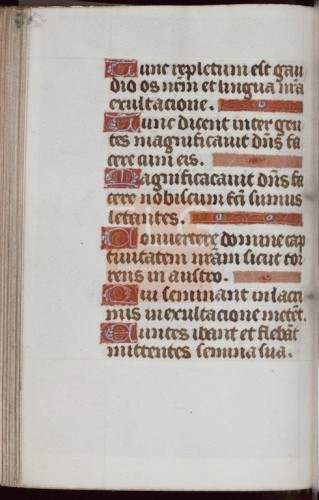 Tunc repletum est gau
dio os nr̄m et lingua nr̄a
exultacione.
Tunc dicent inter gen
tes magnificavit dn̄s fa
cere cum eis.
Magnificacavit dn̄s fa
cere nobiscum fcī sumus
letantes.
Convertere domine cap
tivitatem nr̄am sicut tor
rens in austro.
Qui seminant in lacri
mis in exultacione metēt.
Euntes ibant et flebāt
mittentes semina sua.